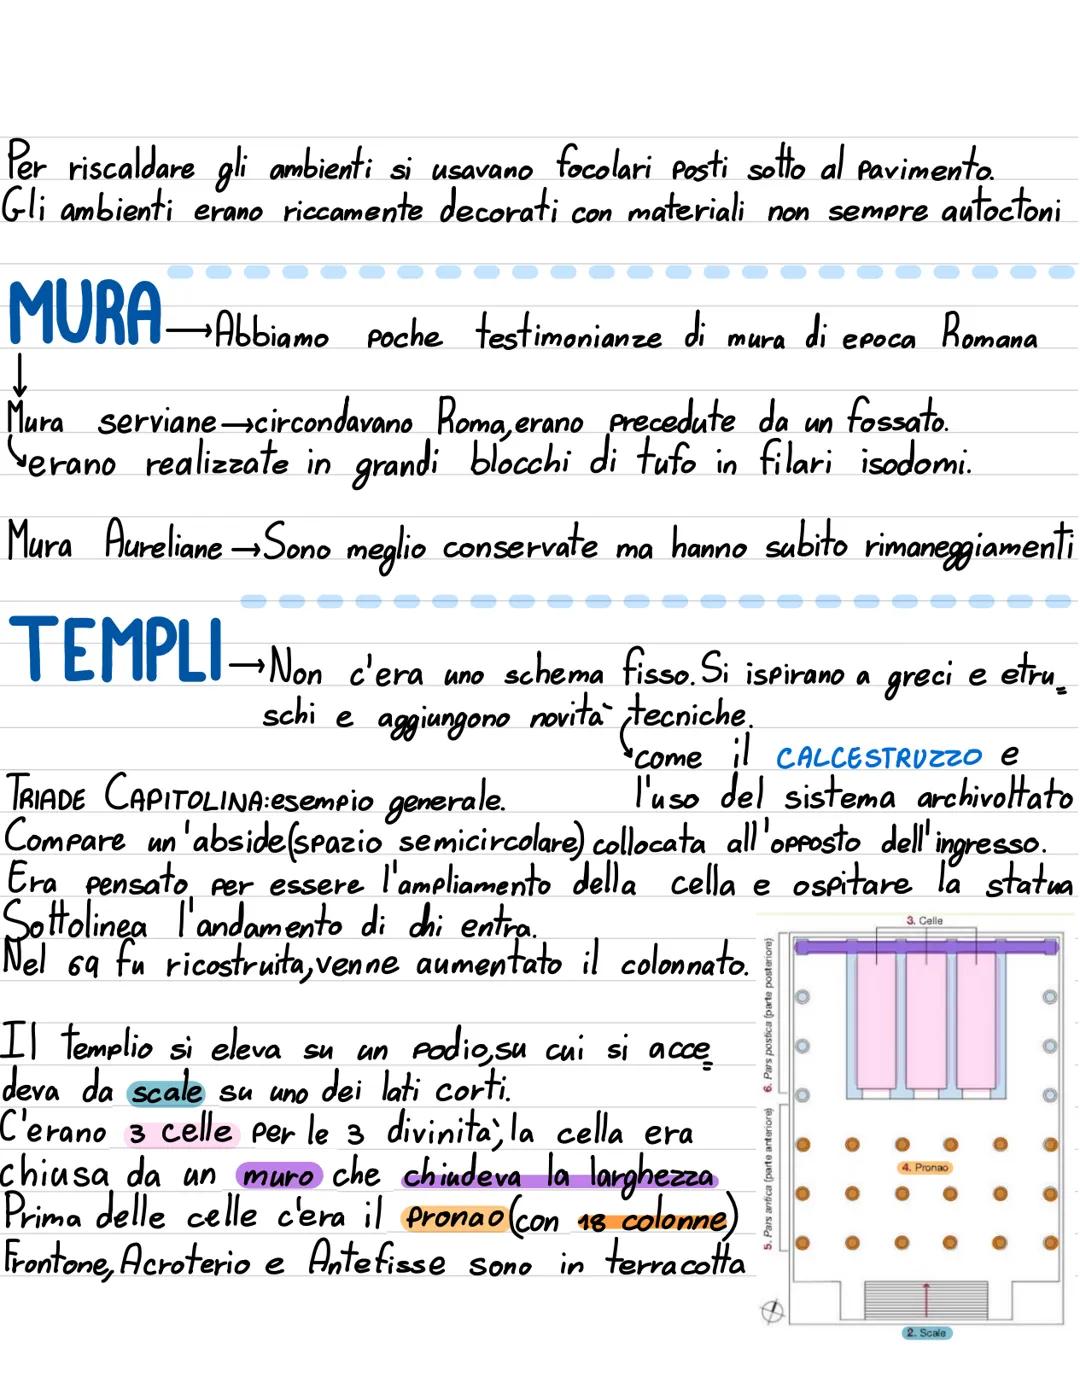 Per riscaldare gli ambienti si usavano focolari posti sotto al pavimento.
Gli ambienti erano riccamente decorati con materiali non sempre autoctoni
MURA → Abbiamo poche testimonianze di mura di epoca Romana
↓
Mura serviane → circondavano Roma, erano precedute da un fossato.
↳ erano realizzate in grandi blocchi di tufo in filari isodomi.
Mura Aureliane → Sono meglio conservate ma hanno subito rimaneggiamenti
TEMPLI → Non c'era uno schema fisso. Si ispirano a greci e etru=
schi e aggiungono novità tecniche.
↳ come il CALCESTRUZZO e
l'uso del sistema archivoltato
TRIADE CAPITOLINA: esempio generale.
Compare un'abside (spazio semicircolare) collocata all'opposto dell'ingresso.
Era pensato per essere l'ampliamento della cella e ospitare la statua
Sottolinea l'andamento di chi entra.
Nel 69 fu ricostruita, venne aumentato il colonnato.
Il templio si eleva su un podio, su cui si acce=
deva da scale su uno dei lati corti.
C'erano 3 celle per le 3 divinità, la cella era
chiusa da un muro che chiudeva la larghezza
Prima delle celle c'era il pronao (con 18 colonne)
Frontone, Acroterio e Antefisse sono in terracotta
3. Celle
6. Pars postica (parte posteriore)
4. Pronao
5. Pars antica (parte anteriore)
2. Scale